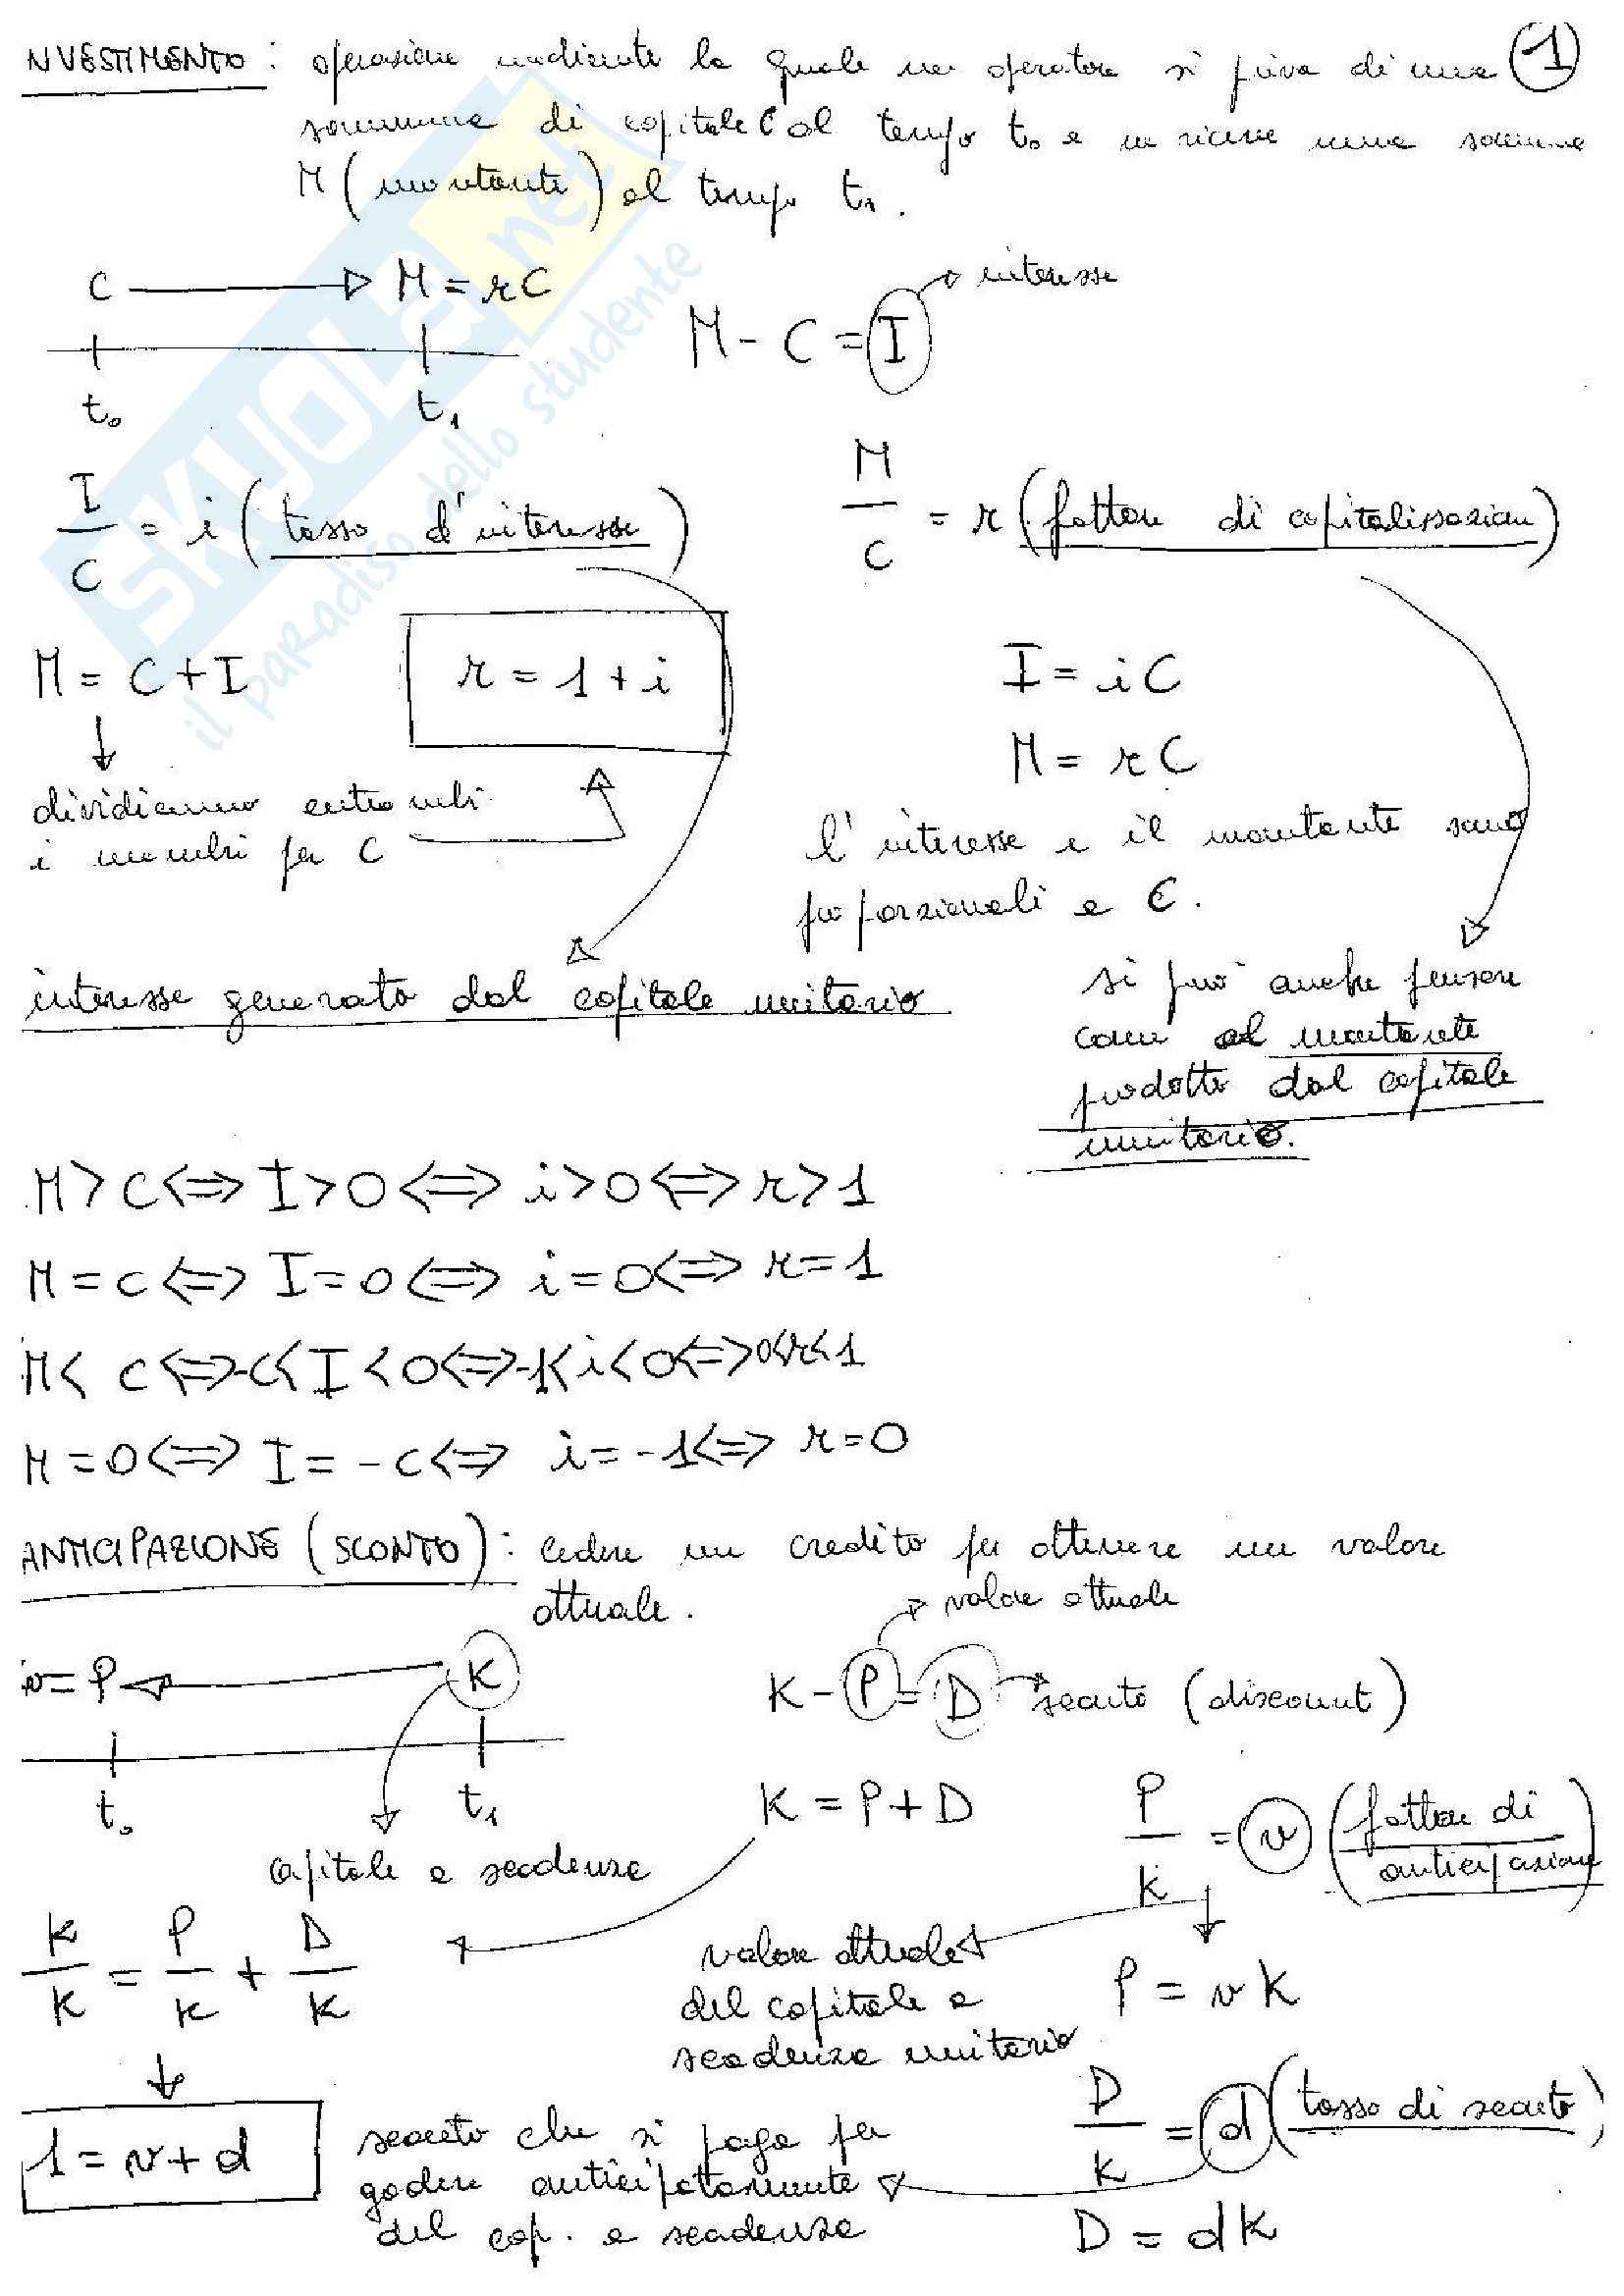 NVESTIMENTO : operazione mediante la quale un operatore si priva di una ①
somma di capitale C al tempo t₀ e ne riceve una somma
M (montante) al tempo t₁.
C → M = rC
t₀ t₁
M - C = I → interesse
I/C = i (tasso d'interesse)
M/C = r (fattore di capitalizzazione)
M = C + I
r = 1 + i
I = iC
M = rC
dividiamo entrambi
i membri per C
l'interesse e il montante sono
proporzionali a C.
interesse generato dal capitale unitario
si può anche pensare
come al montante
prodotto dal capitale
unitario.
M > C ⟺ I > 0 ⟺ i > 0 ⟺ r > 1
M = C ⟺ I = 0 ⟺ i = 0 ⟺ r = 1
M < C ⟺ -C < I < 0 ⟺ -1 < i < 0 ⟺ 0 < r < 1
M = 0 ⟺ I = -C ⟺ i = -1 ⟺ r = 0
ANTICIPAZIONE (SCONTO) : cedere un credito per ottenere un valore
attuale.
valore attuale
v = P ← K
K - P = D → sconto (discount)
t₀ t₁
capitale a scadenza
K = P + D
P/K = v (fattore di
anticipazione)
K/K = P/K + D/K
valore attuale
del capitale a
scadenza unitario
P = vK
1 = v + d
sconto che si paga per
godere anticipatamente
del cap. a scadenza
D/K = d (tasso di sconto)
D = dK
SKUOLA.net
il paradiso dello studente